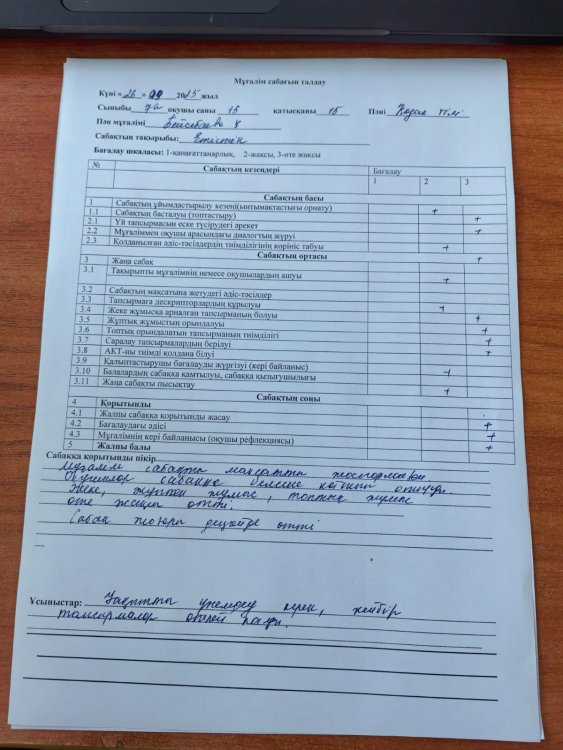 Мұғалім сабағын талдау
Күні «26» 09 2025 жыл
Сыныбы 7а оқушы саны 15 қатысқаны 15 Пәні Қазақ тілі
Пән мұғалімі
Сабақтың тақырыбы: Етістік
Бағалау шкаласы: 1-қанағаттанарлық, 2-жақсы, 3-өте жақсы
№ Сабақтың кезеңдері Бағалау
1 2 3
Сабақтың басы
1 Сабақтың ұйымдастырылу кезеңі(ынтымақтастығы орнату)
1.1 Сабақтың басталуы (топтастыру) +
2.1 Үй тапсырмасын еске түсірудегі әрекет +
2.2 Мұғаліммен оқушы арасындағы диалогтың жүруі +
2.3 Қолданылған әдіс-тәсілдердің тиімділігінің көрініс табуы +
Сабақтың ортасы
3 Жаңа сабақ +
3.1 Тақырыпты мұғалімнің немесе оқушылардың ашуы +
3.2 Сабақтың мақсатына жетудегі әдіс-тәсілдер
3.3 Тапсырмаға дескрипторлардың құрылуы +
3.4 Жеке жұмысқа арналған тапсырманың болуы +
3.5 Жұптық жұмыстың орындалуы +
3.6 Топтық орындалатын тапсырманың тиімділігі +
3.7 Саралау тапсырмалардың берілуі +
3.8 АКТ-ны тиімді қолдана білуі +
3.9 Қалыптастырушы бағалауды жүргізуі (кері байланыс)
3.10 Балалардың сабаққа қамтылуы, сабаққа қызығушылығы +
3.11 Жаңа сабақты пысықтау +
Сабақтың соңы
4 Қорытынды
4.1 Жалпы сабаққа қорытынды жасау
4.2 Бағалаудағы әдісі +
4.3 Мұғалімнің кері байланысы (оқушы рефлекциясы) +
5 Жалпы балы +
Сабаққа қорытынды пікір
Мұғалім сабақты мақсатты жоспарлаған.
Оқушылар сабаққа белсене қатысып отырды.
Жеке, жұптық жұмыс, топтық жұмыс
өте жақсы өтті.
Сабақ жоғары деңгейде өтті
Ұсыныстар: Уақытты үнемдеу керек, кейбір
тапсырмалар қалды.